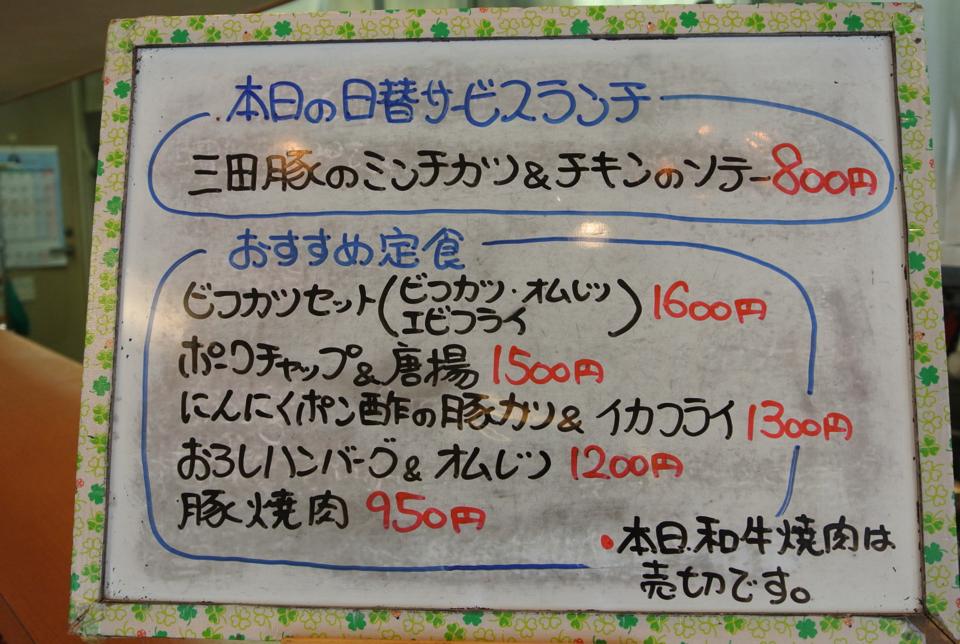 本日の日替サービスランチ
三田豚のミンチカツ&チキンのソテー800円
おすすめ定食
ビフカツセット(ビフカツ・オムレツ
エビフライ) 1600円
ポークチャップ&唐揚 1500円
にんにくポン酢の豚カツ& イカフライ 1300円
おろしハンバーグ& オムレツ 1200円
豚焼肉 950円
•本日.和牛焼肉は
売切です。